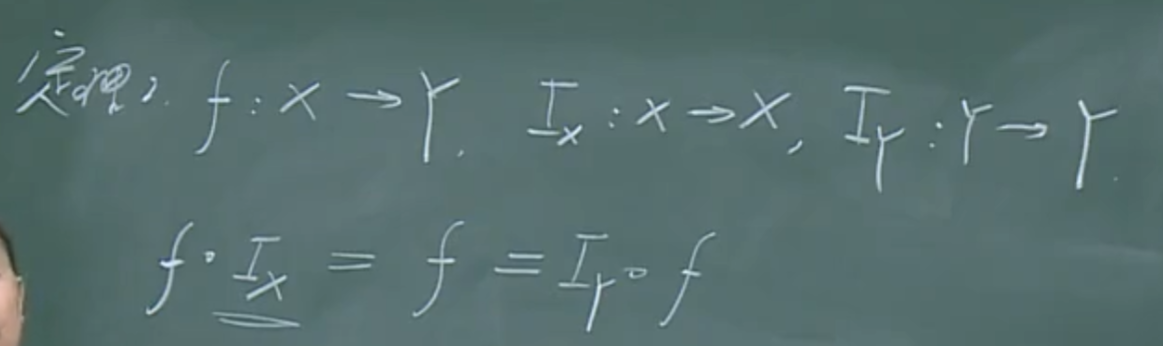 定理2. f: X → Y, I_X: X → X, I_Y: Y → Y.
f∘I_X = f = I_Y∘f